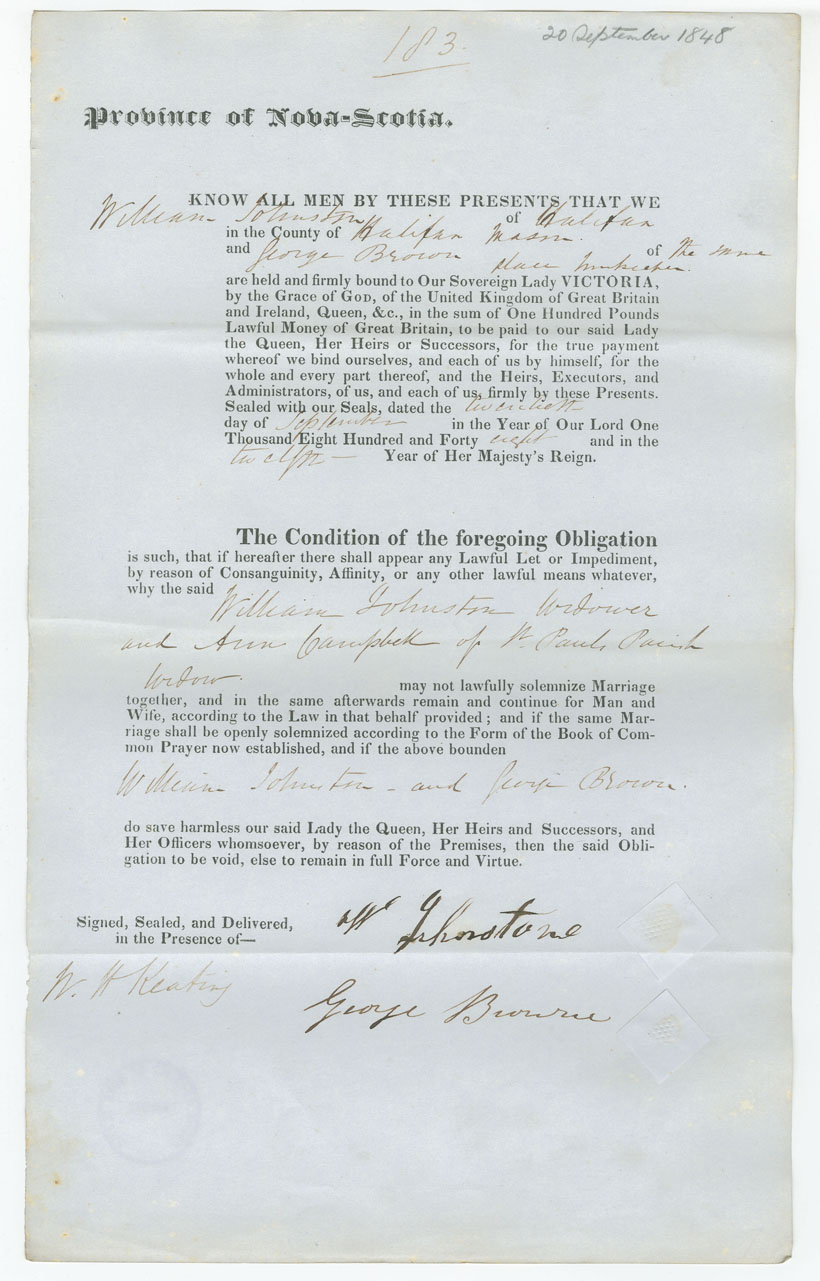 183.
20 September 1848
Province of Nova-Scotia.
KNOW ALL MEN BY THESE PRESENTS, THAT WE
William Johnston of Halifax
in the County of Halifax Mason.
and George Brown of the same
place Innkeeper.
are held and firmly bound to Our Sovereign Lady VICTORIA,
by the Grace of GOD, of the United Kingdom of Great Britain
and Ireland, Queen, &c., in the sum of One Hundred Pounds
Lawful Money of Great Britain, to be paid to our said Lady
the Queen, Her Heirs or Successors, for the true payment
whereof we bind ourselves, and each of us by himself, for the
whole and every part thereof, and the Heirs, Executors, and
Administrators, of us, and each of us, firmly by these Presents.
Sealed with our Seals, dated the twentieth
day of September in the Year of Our Lord One
Thousand Eight Hundred and Forty eight and in the
twelfth — Year of Her Majesty's Reign.
The Condition of the foregoing Obligation
is such, that if hereafter there shall appear any Lawful Let or Impediment,
by reason of Consanguinity, Affinity, or any other lawful means whatever,
why the said
William Johnston Widower
and Ann Campbell of St. Pauls Parish
Widow.
may not lawfully solemnize Marriage
together, and in the same afterwards remain and continue for Man and
Wife, according to the Law in that behalf provided; and if the same Mar-
riage shall be openly solemnized according to the Form of the Book of Com-
mon Prayer now established, and if the above bounden
William Johnston - and George Brown.
do save harmless our said Lady the Queen, Her Heirs and Successors, and
Her Officers whomsoever, by reason of the Premises, then the said Obli-
gation to be void, else to remain in full Force and Virtue.
Signed, Sealed, and Delivered,
in the Presence of—
Wm Johnstone
W. H Keating
George Browne